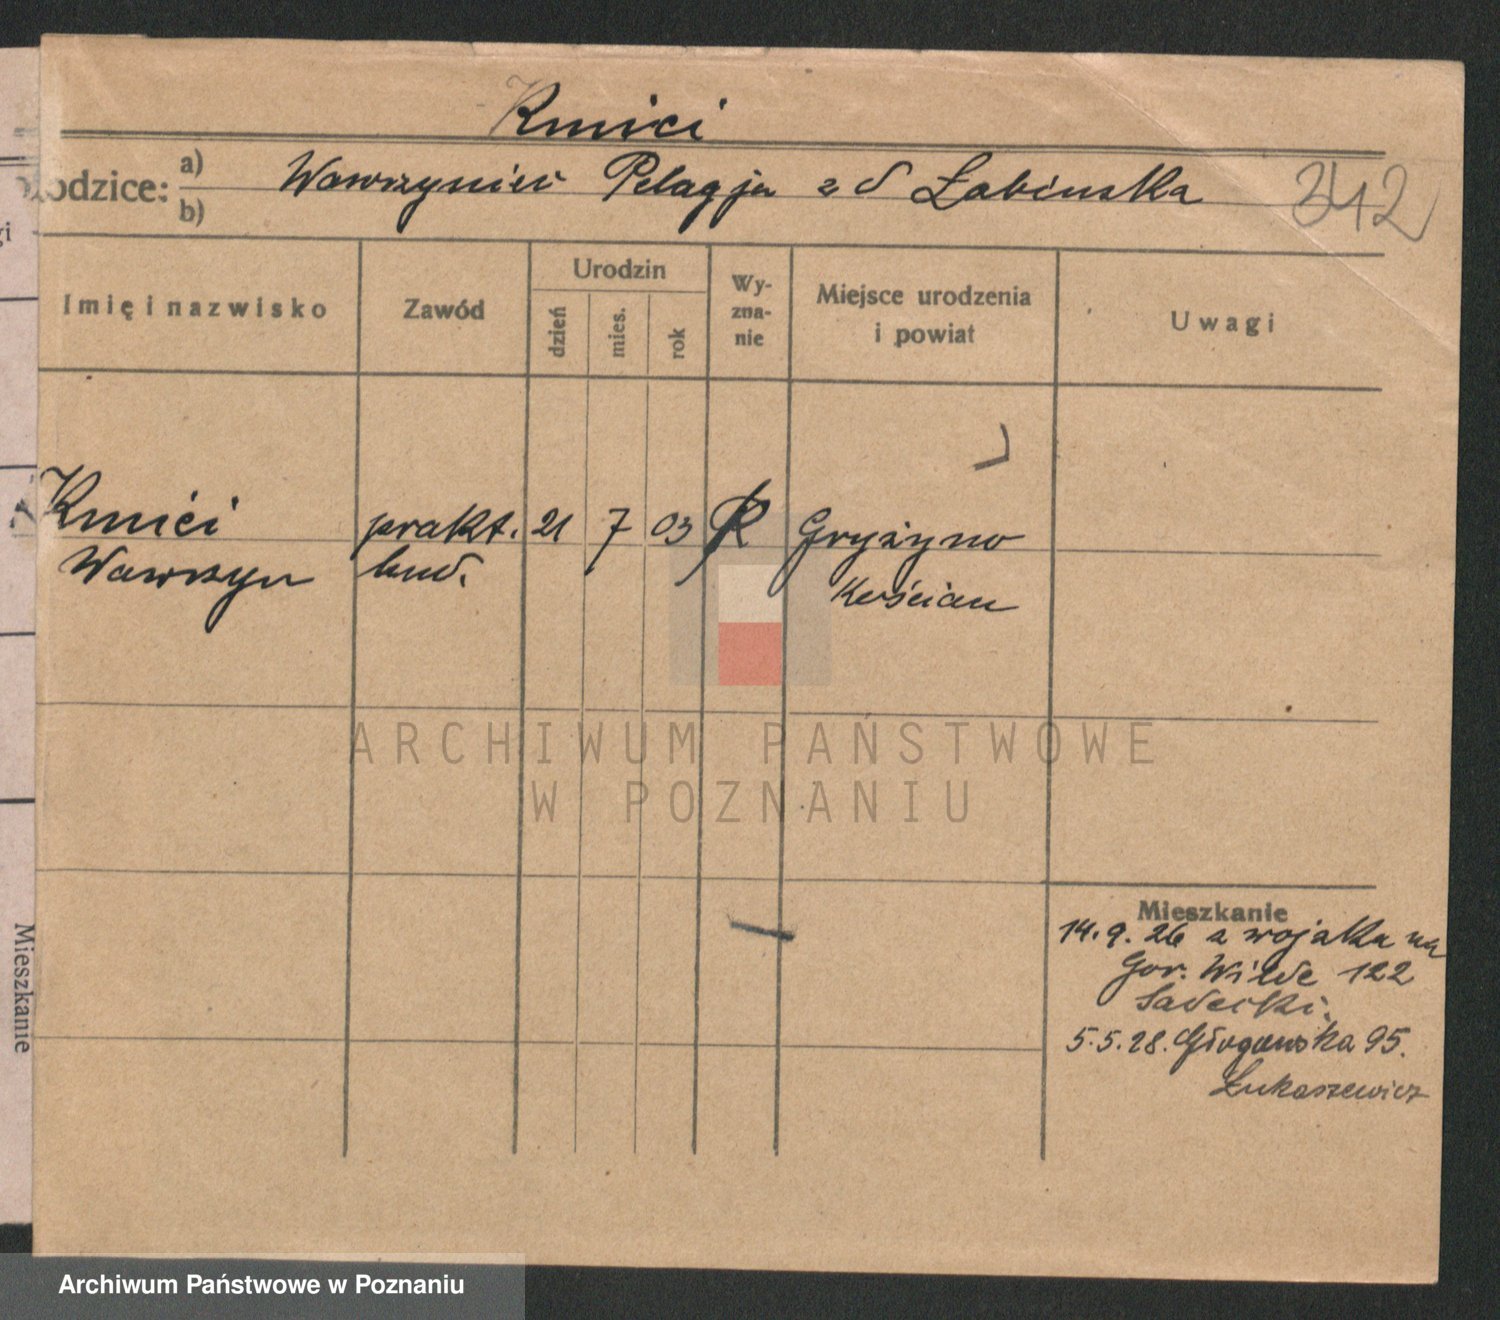 Kmici
Rodzice: a) b)
Wawrzyniec Pelagja z d Łabińska
342
Imię i nazwisko
Zawód
Urodzin
dzień
mies.
rok
Wy-
zna-
nie
Miejsce urodzenia
i powiat
Uwagi
Kmici prakt. 21 7 03 R Gryżyno
Wawrzyn bud. Kościan
ARCHIWUM PAŃSTWOWE
W POZNANIU
Mieszkanie
14.9.26 z wojska na
Gór. Wilde 122
Sadecki.
5.5.28. Głogowska 95.
Łukaszewicz
gi
Mieszkanie
Archiwum Państwowe w Poznaniu